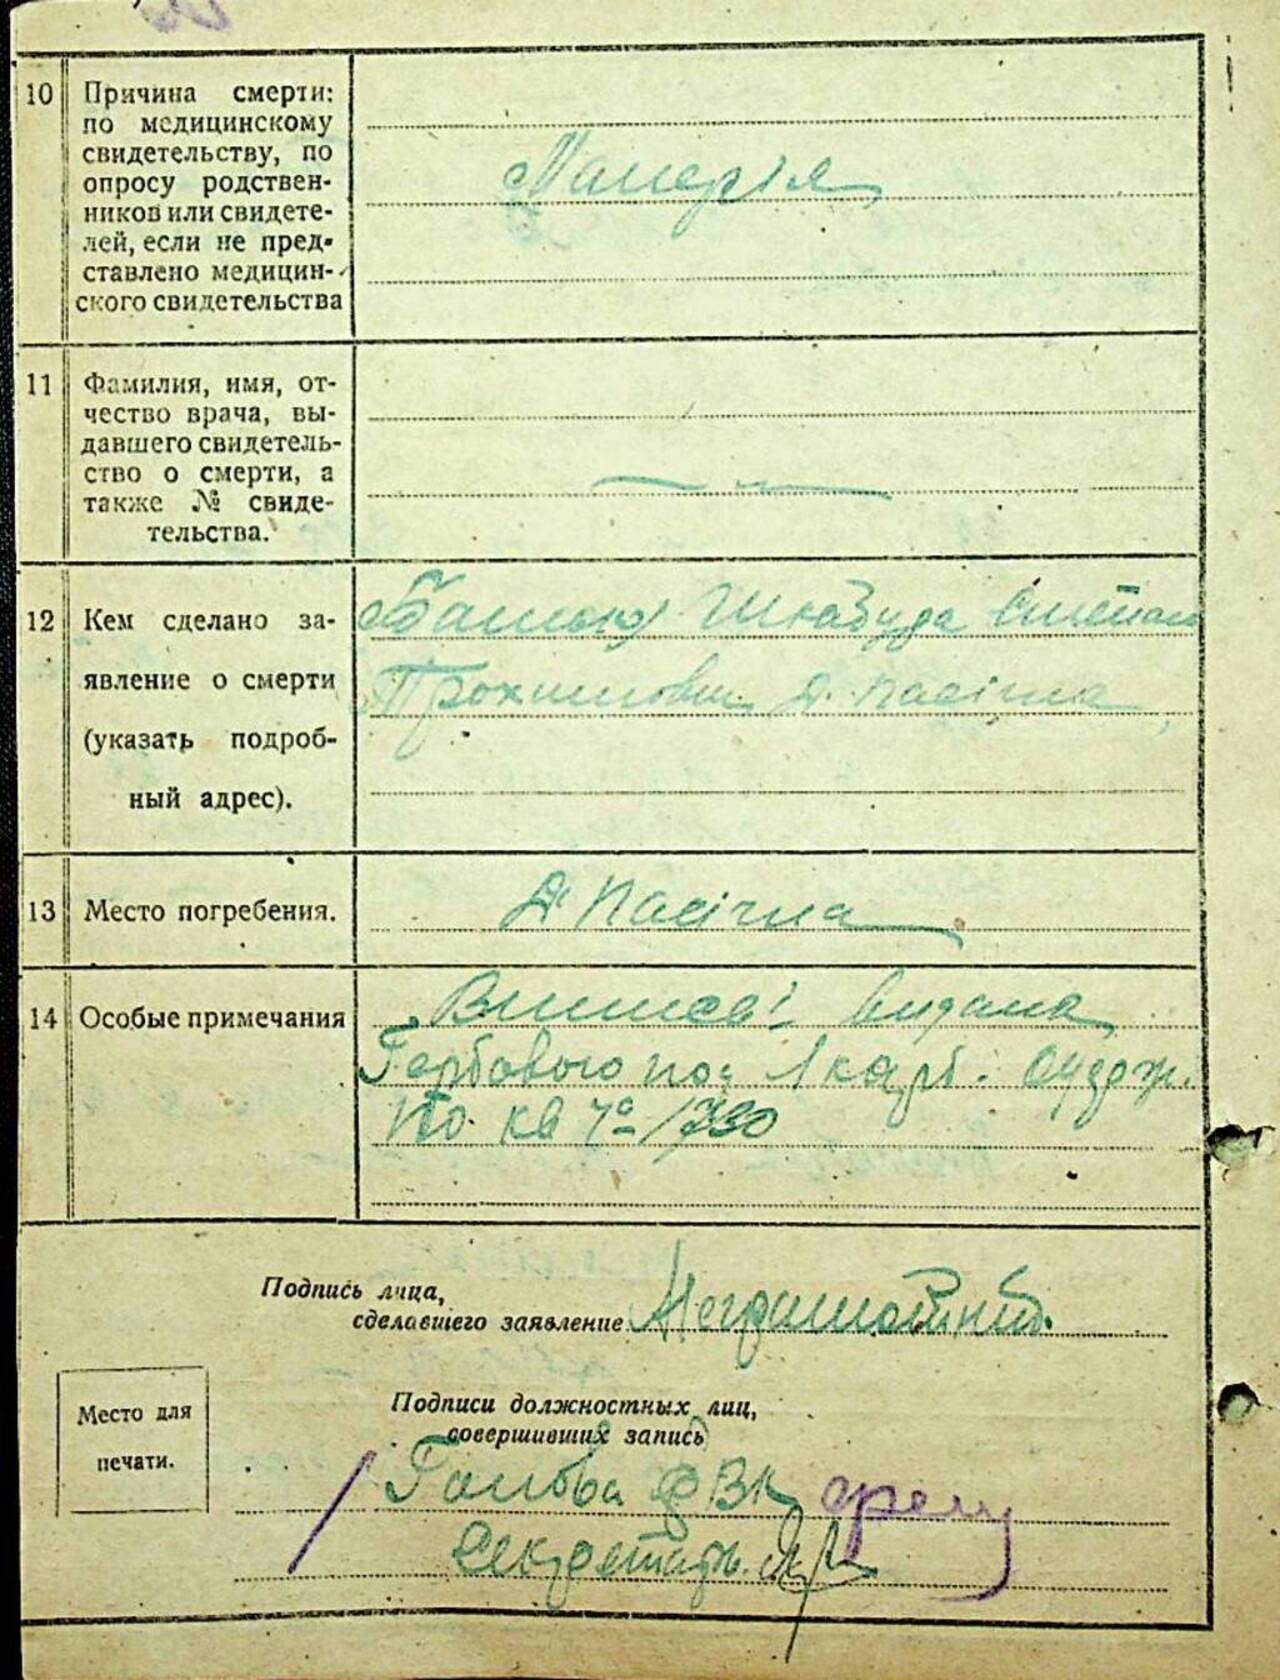 10
Причина смерти:
по медицинскому
свидетельству, по
опросу родствен-
ников или свидете-
лей, если не пред-
ставлено медицин-
ского свидетельства
Малерія
11
Фамилия, имя, от-
чество врача, вы-
давшего свидетель-
ство о смерти, а
также № свиде-
тельства.
12
Кем сделано за-
явление о смерти
(указать подроб-
ный адрес).
Батько Шкабура Степан
Д. Пасічна
13
Место погребения.
Д. Пасічна
14
Особые примечания
видана
Гербового по 1 карб.
По кв
Подпись лица,
сделавшего заявление
Место для
печати.
Подписи должностных лиц,
совершивших запись
Голова ФВК
Секретарь